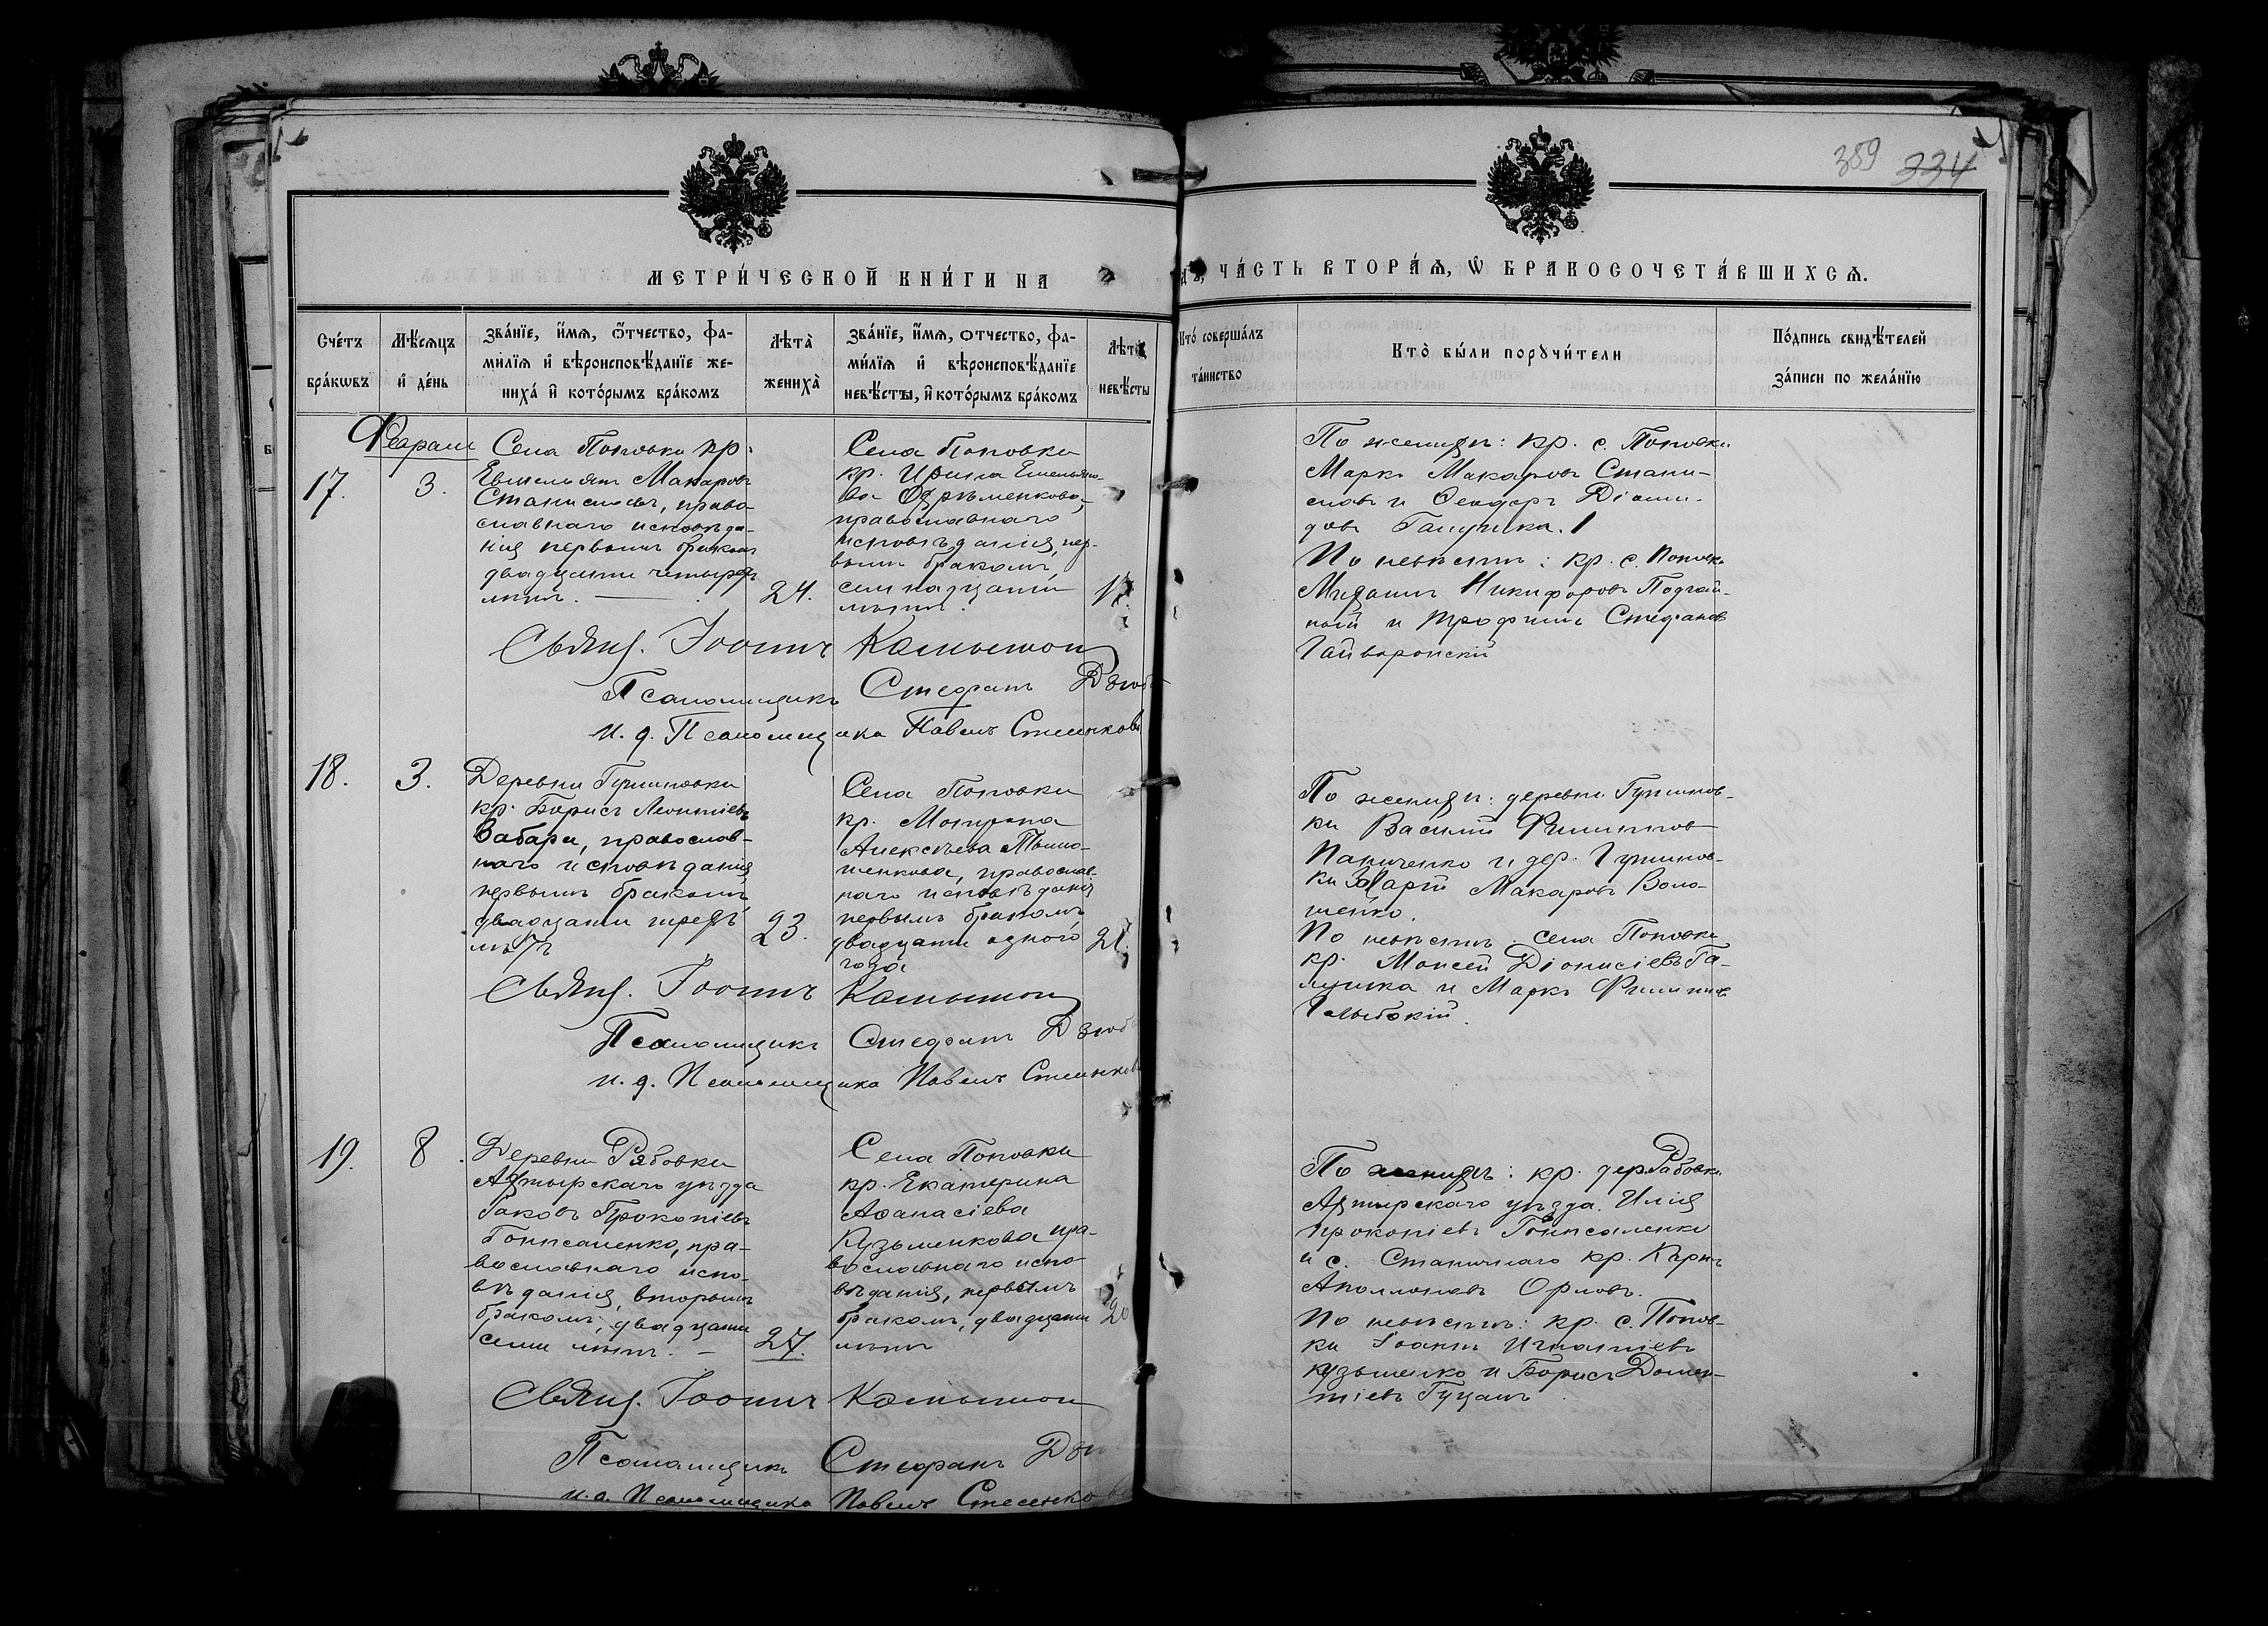 359 334
МЕТРИ́ЧЕСКОЙ КНИ́ГИ НА
ЧА́СТЬ ВТОРА́Ѧ, Ѡ҆ БРАКОСОЧЕТА́ВШИХСѦ.
Сче́тъ бра́кѡвъ
Мѣ́сѧцъ и҆ де́нь
Зва́нїе, и҆́мѧ, ѻ҆́тчество, фа-
ми́лїѧ и҆ вѣроисповѣ́данїе же-
ниха̀ и҆ кото́рымъ бра́комъ
Лѣ́та̀ жениха̀
Зва́нїе, и҆́мѧ, ѻтчество, фа-
ми́лїѧ и҆ вѣроисповѣ́данїе
невѣ́сты, и҆ кото́рымъ бра́комъ
Лѣта̀ невѣ́сты
Кто̀ соверша́лъ
та́инство
Кто̀ бы́ли порꙋчи́тели
По́дпись свидѣ́телей
за́писи по жела́нїю
Февраля
17.
3.
Села Поповки кр.
Емельянъ Макаровъ
Станиславъ, право-
славнаго исповѣда-
нія первымъ бракомъ
двадцати четырехъ
лѣтъ.
24.
Села Поповки
кр. Ирина Емельяно-
ва
православнаго
исповѣданія, пер-
вымъ бракомъ,
семнадцати
лѣтъ.
17.
Священ. Іоаннъ
Псаломщикъ Стефанъ
и. д. Псаломщика Павелъ
По женихѣ: кр. с. Поповки
Маркъ Макаровъ Стани-
славъ и Ѳеодоръ Діони-
довъ Галушка.
По невѣстѣ: кр. с. Поповки
Никифоровъ
и Трофимъ Стефановъ
Гайворонскій
18.
3.
Деревни
кр. Борисъ Леонтіевъ
Бабари, православ-
наго исповѣданія
первымъ бракомъ,
двадцати трехъ
лѣтъ
23.
Села Поповки
кр. Матрона
Алексѣева
православ-
наго исповѣданія
первымъ бракомъ,
двадцати одного
года
21.
Священ. Іоаннъ
Псаломщикъ Стефанъ
и. д. Псаломщика Павелъ
По женихѣ: деревни
Василій Филипповъ
Панченко и дер.
Макаровъ Воло-
шенко.
По невѣстѣ: села Поповки
кр. Моисей Діонисіевъ Га-
лушка и Маркъ Филиповъ
19.
8.
Деревни Рябовки
Ахтырскаго уѣзда
Іаковъ Прокопіевъ
пра-
вославнаго испо-
вѣданія, вторымъ
бракомъ, двадцати
семи лѣтъ.
27.
Села Поповки
кр. Екатерина
Аѳанасіева
Кузьменкова пра-
вославнаго испо-
вѣданія, первымъ
бракомъ, двадцати
лѣтъ
20
Священ. Іоаннъ
Псаломщикъ Стефанъ
и. д. Псаломщика Павелъ
По женихѣ: кр. дер. Рябовки
Ахтырскаго уѣзда Илія
Прокопіевъ
и с. Станичнаго кр. Карпъ
Аполлоновъ Орловъ.
По невѣстѣ: кр. с. Попов-
ки Іоаннъ Игнатіевъ
Кузьменко и Борисъ Домен-
тіевъ Гуцанъ